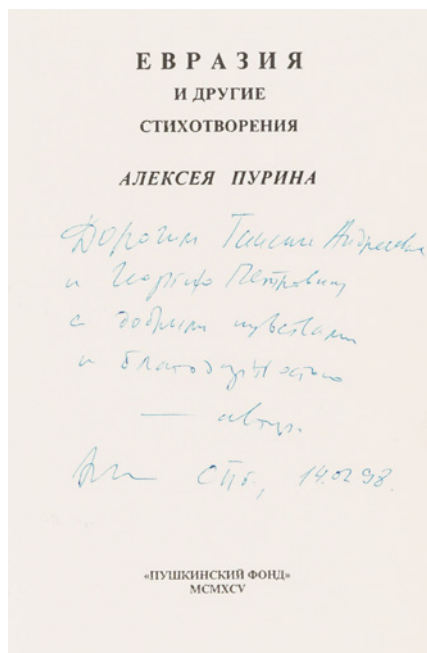 ЕВРАЗИЯ
И ДРУГИЕ
СТИХОТВОРЕНИЯ
АЛЕКСЕЯ ПУРИНА
Дорогим Андреевне
и Георгию Петровичу
с добрыми чувствами
и благодарностью
— автор.
СПб., 14.02.98.
«ПУШКИНСКИЙ ФОНД»
MCMXCV